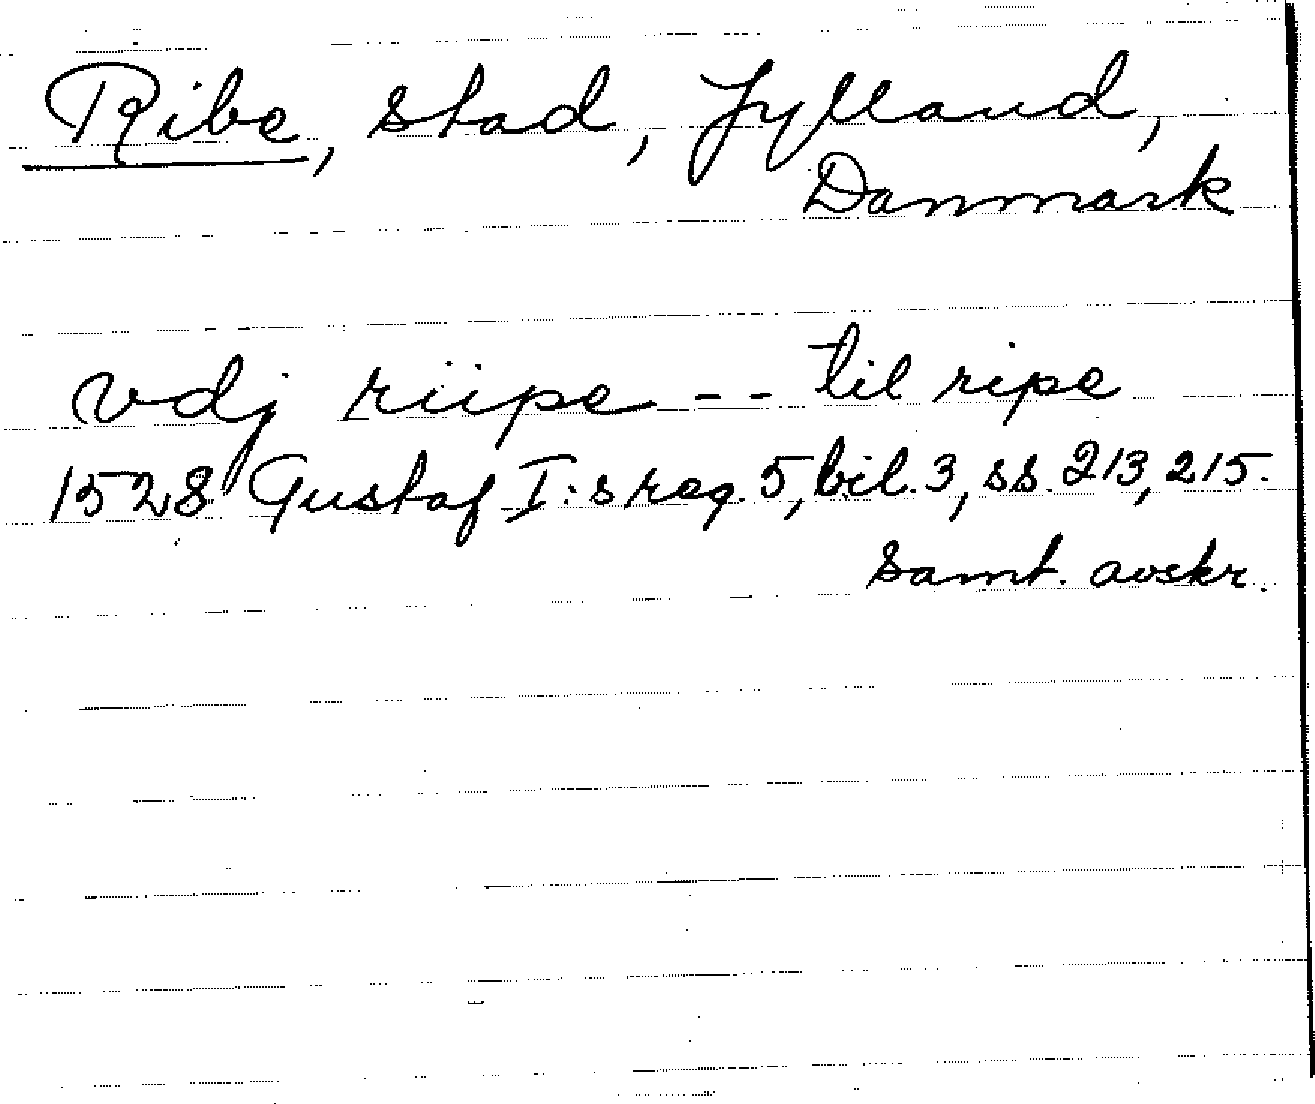 Ribe, stad, Jylland,
Danmark
vdj riipe -- til ripe
1528 Gustaf I:s reg. 5, bil. 3, ss. 213, 215.
Samt. avskr.